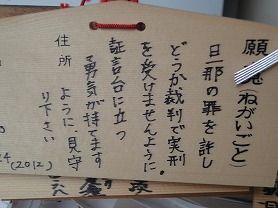 願意(ねがいごと)
旦那の罪を許し
どうか裁判で実刑
を受けませんように。
証言台に立つ
勇気が持てます
ように、見守
り下さい
住所
24
(2012)